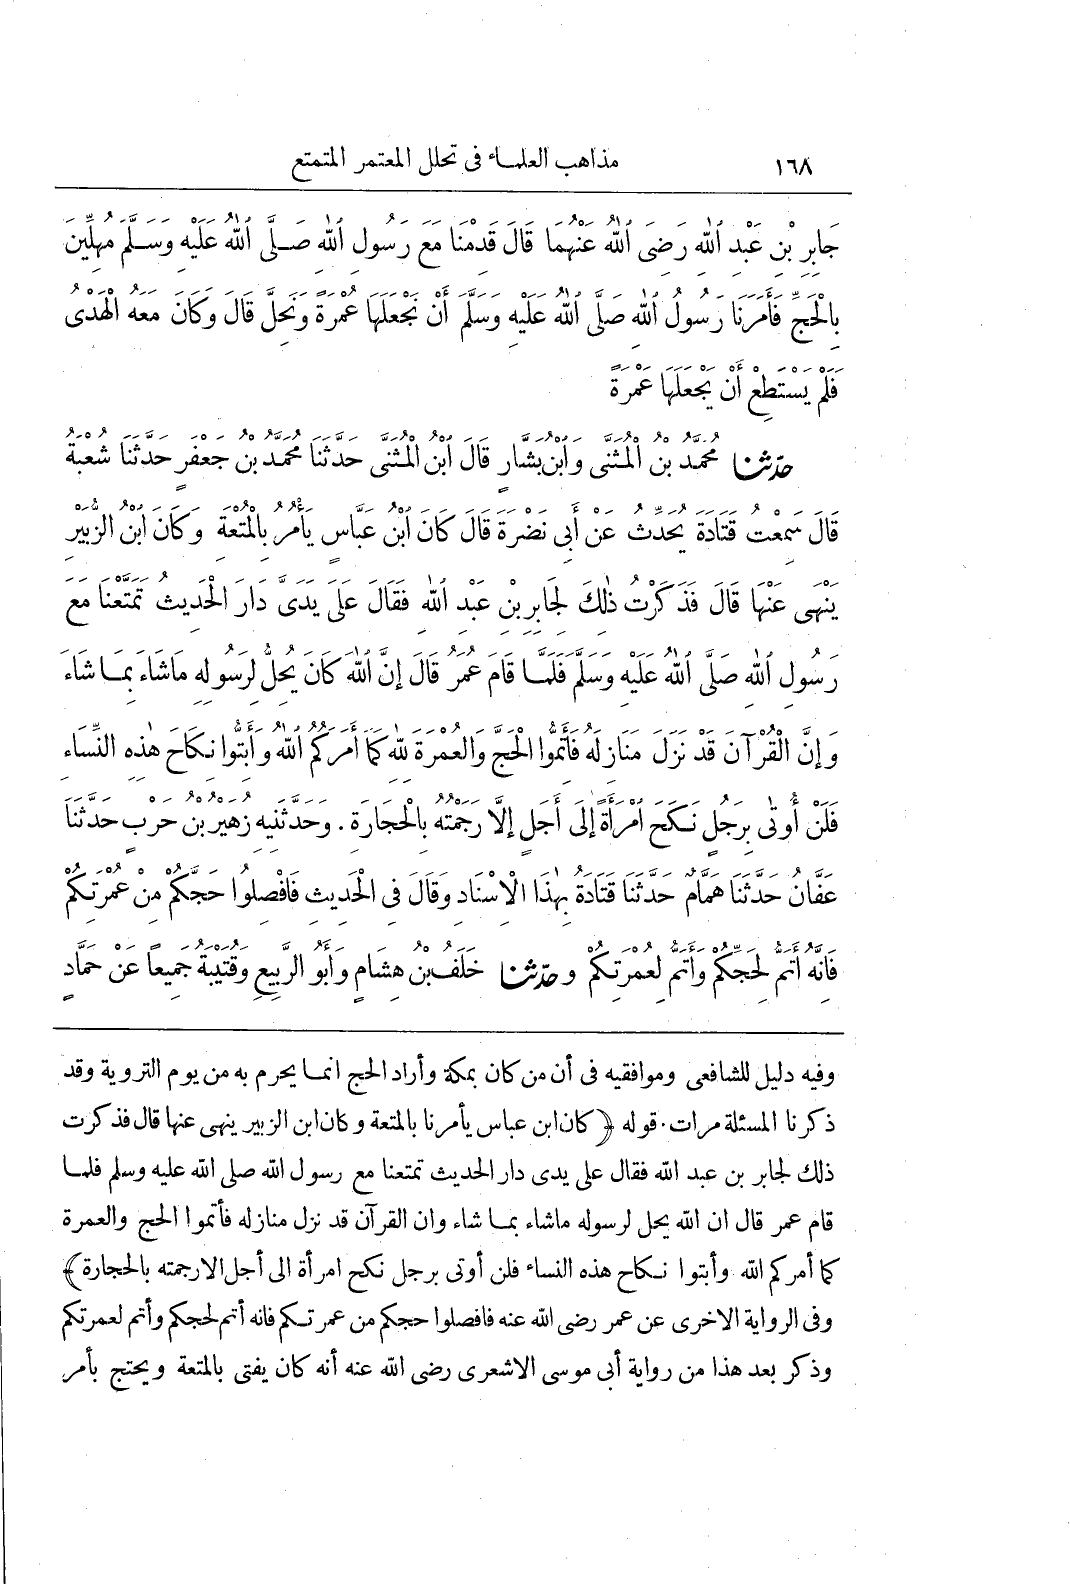 ١٦٨ مذاهب العلماء فى تحلل المعتمر المتمتع
جَابِرِ بْنِ عَبْدِ اللهِ رَضِىَ اللهُ عَنْهُمَا قَالَ قَدِمْنَا مَعَ رَسُولِ اللهِ صَلَّى اللهُ عَلَيْهِ وَسَلَّمَ مُهِلِّينَ
بِالْحَجِّ فَأَمَرَنَا رَسُولُ اللهِ صَلَّى اللهُ عَلَيْهِ وَسَلَّمَ أَنْ نَجْعَلَهَا عُمْرَةً وَنَحِلَّ قَالَ وَكَانَ مَعَهُ الْهَدْىُ
فَلَمْ يَسْتَطِعْ أَنْ يَجْعَلَهَا عُمْرَةً
حدّثنا مُحَمَّدُ بْنُ الْمُثَنَّى وَابْنُ بَشَّارٍ قَالَ ابْنُ الْمُثَنَّى حَدَّثَنَا مُحَمَّدُ بْنُ جَعْفَرٍ حَدَّثَنَا شُعْبَةُ
قَالَ سَمِعْتُ قَتَادَةَ يُحَدِّثُ عَنْ أَبِى نَضْرَةَ قَالَ كَانَ ابْنُ عَبَّاسٍ يَأْمُرُ بِالْمُتْعَةِ وَكَانَ ابْنُ الزُّبَيْرِ
يَنْهَى عَنْهَا قَالَ فَذَكَرْتُ ذٰلِكَ لِجَابِرِ بْنِ عَبْدِ اللهِ فَقَالَ عَلَى يَدَىَّ دَارَ الْحَدِيثُ تَمَتَّعْنَا مَعَ
رَسُولِ اللهِ صَلَّى اللهُ عَلَيْهِ وَسَلَّمَ فَلَمَّا قَامَ عُمَرُ قَالَ إِنَّ اللهَ كَانَ يُحِلُّ لِرَسُولِهِ مَاشَاءَ بِمَا شَاءَ
وَإِنَّ الْقُرْآنَ قَدْ نَزَلَ مَنَازِلَهُ فَأَتِمُّوا الْحَجَّ وَالْعُمْرَةَ لِلهِ كَمَا أَمَرَكُمُ اللهُ وَأَبِتُّوا نِكَاحَ هٰذِهِ النِّسَاءِ
فَلَنْ أُوتَى بِرَجُلٍ نَكَحَ امْرَأَةً إِلَى أَجَلٍ إِلَّا رَجَمْتُهُ بِالْحِجَارَةِ . وَحَدَّثَنِيهِ زُهَيْرُ بْنُ حَرْبٍ حَدَّثَنَا
عَفَّانُ حَدَّثَنَا هَمَّامٌ حَدَّثَنَا قَتَادَةُ بِهٰذَا الْإِسْنَادِ وَقَالَ فِى الْحَدِيثِ فَافْصِلُوا حَجَّكُمْ مِنْ عُمْرَتِكُمْ
فَإِنَّهُ أَتَمُّ لِحَجِّكُمْ وَأَتَمُّ لِعُمْرَتِكُمْ وحدّثنا خَلَفُ بْنُ هِشَامٍ وَأَبُو الرَّبِيعِ وَقُتَيْبَةُ جَمِيعًا عَنْ حَمَّادٍ
وفيه دليل للشافعى وموافقيه فى أن من كان بمكة وأراد الحج انما يحرم به من يوم التروية وقد
ذكرنا المسئلة مرات . قوله ﴿كان ابن عباس يأمرنا بالمتعة وكان ابن الزبير ينهى عنها قال فذكرت
ذلك لجابر بن عبد الله فقال على يدى دار الحديث تمتعنا مع رسول الله صلى الله عليه وسلم فلما
قام عمر قال ان الله يحل لرسوله ماشاء بما شاء وان القرآن قد نزل منازله فأتموا الحج والعمرة
كما أمركم الله وأبتوا نكاح هذه النساء فلن أوتى برجل نكح امرأة الى أجل الا رجمته بالحجارة﴾
وفى الرواية الاخرى عن عمر رضى الله عنه فافصلوا حجكم من عمرتكم فانه أتم لحجكم وأتم لعمرتكم
وذكر بعد هذا من رواية أبى موسى الاشعرى رضى الله عنه أنه كان يفتى بالمتعة ويحتج بأمر